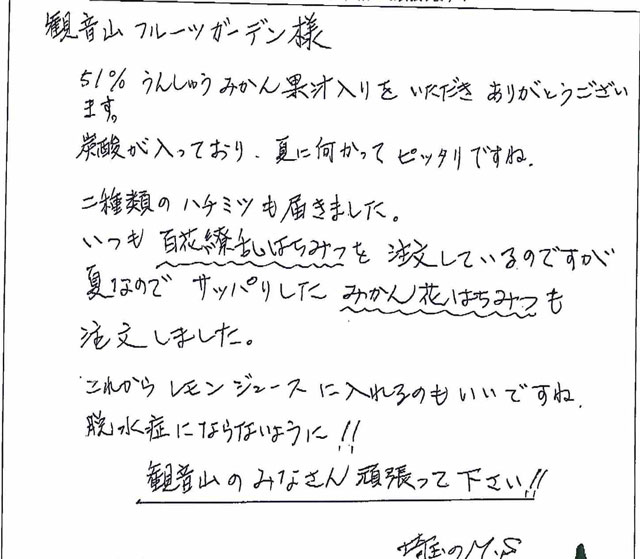 観音山フルーツガーデン様
51% うんしゅうみかん果汁入りを いただき ありがとうござい
ます。
炭酸が入っており、夏に何かって ピッタリですね.
二種類の ハチミツも届きました。
いつも 百花繚乱はちみつを 注文しているのですが
夏なので サッパリした みかん花はちみつも
注文しました。
これから レモンジュースに入れるのもいいですね.
脱水症にならないように!!
観音山のみなさん 頑張って下さい!!
埼玉のM.S